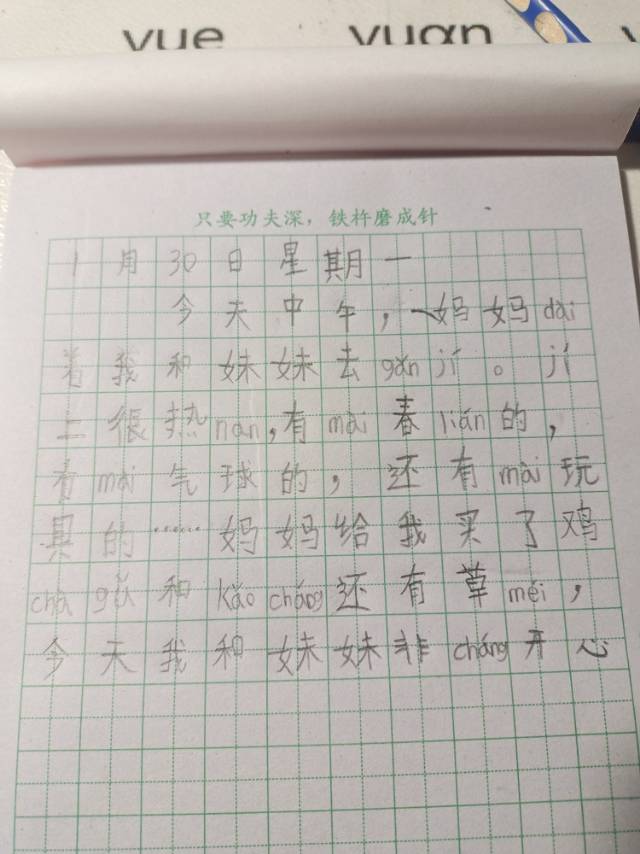 yue yuan
只要功夫深，铁杵磨成针
1月30日星期一
今天中午，妈妈dài
着我和妹妹去gǎn jí。jí
上很热nan，有mài春lián的，
有mài气球的，还有mài玩
具的……妈妈给我买了鸡
chā gǔ和kǎo cháng还有草méi，
今天我和妹妹非cháng开心